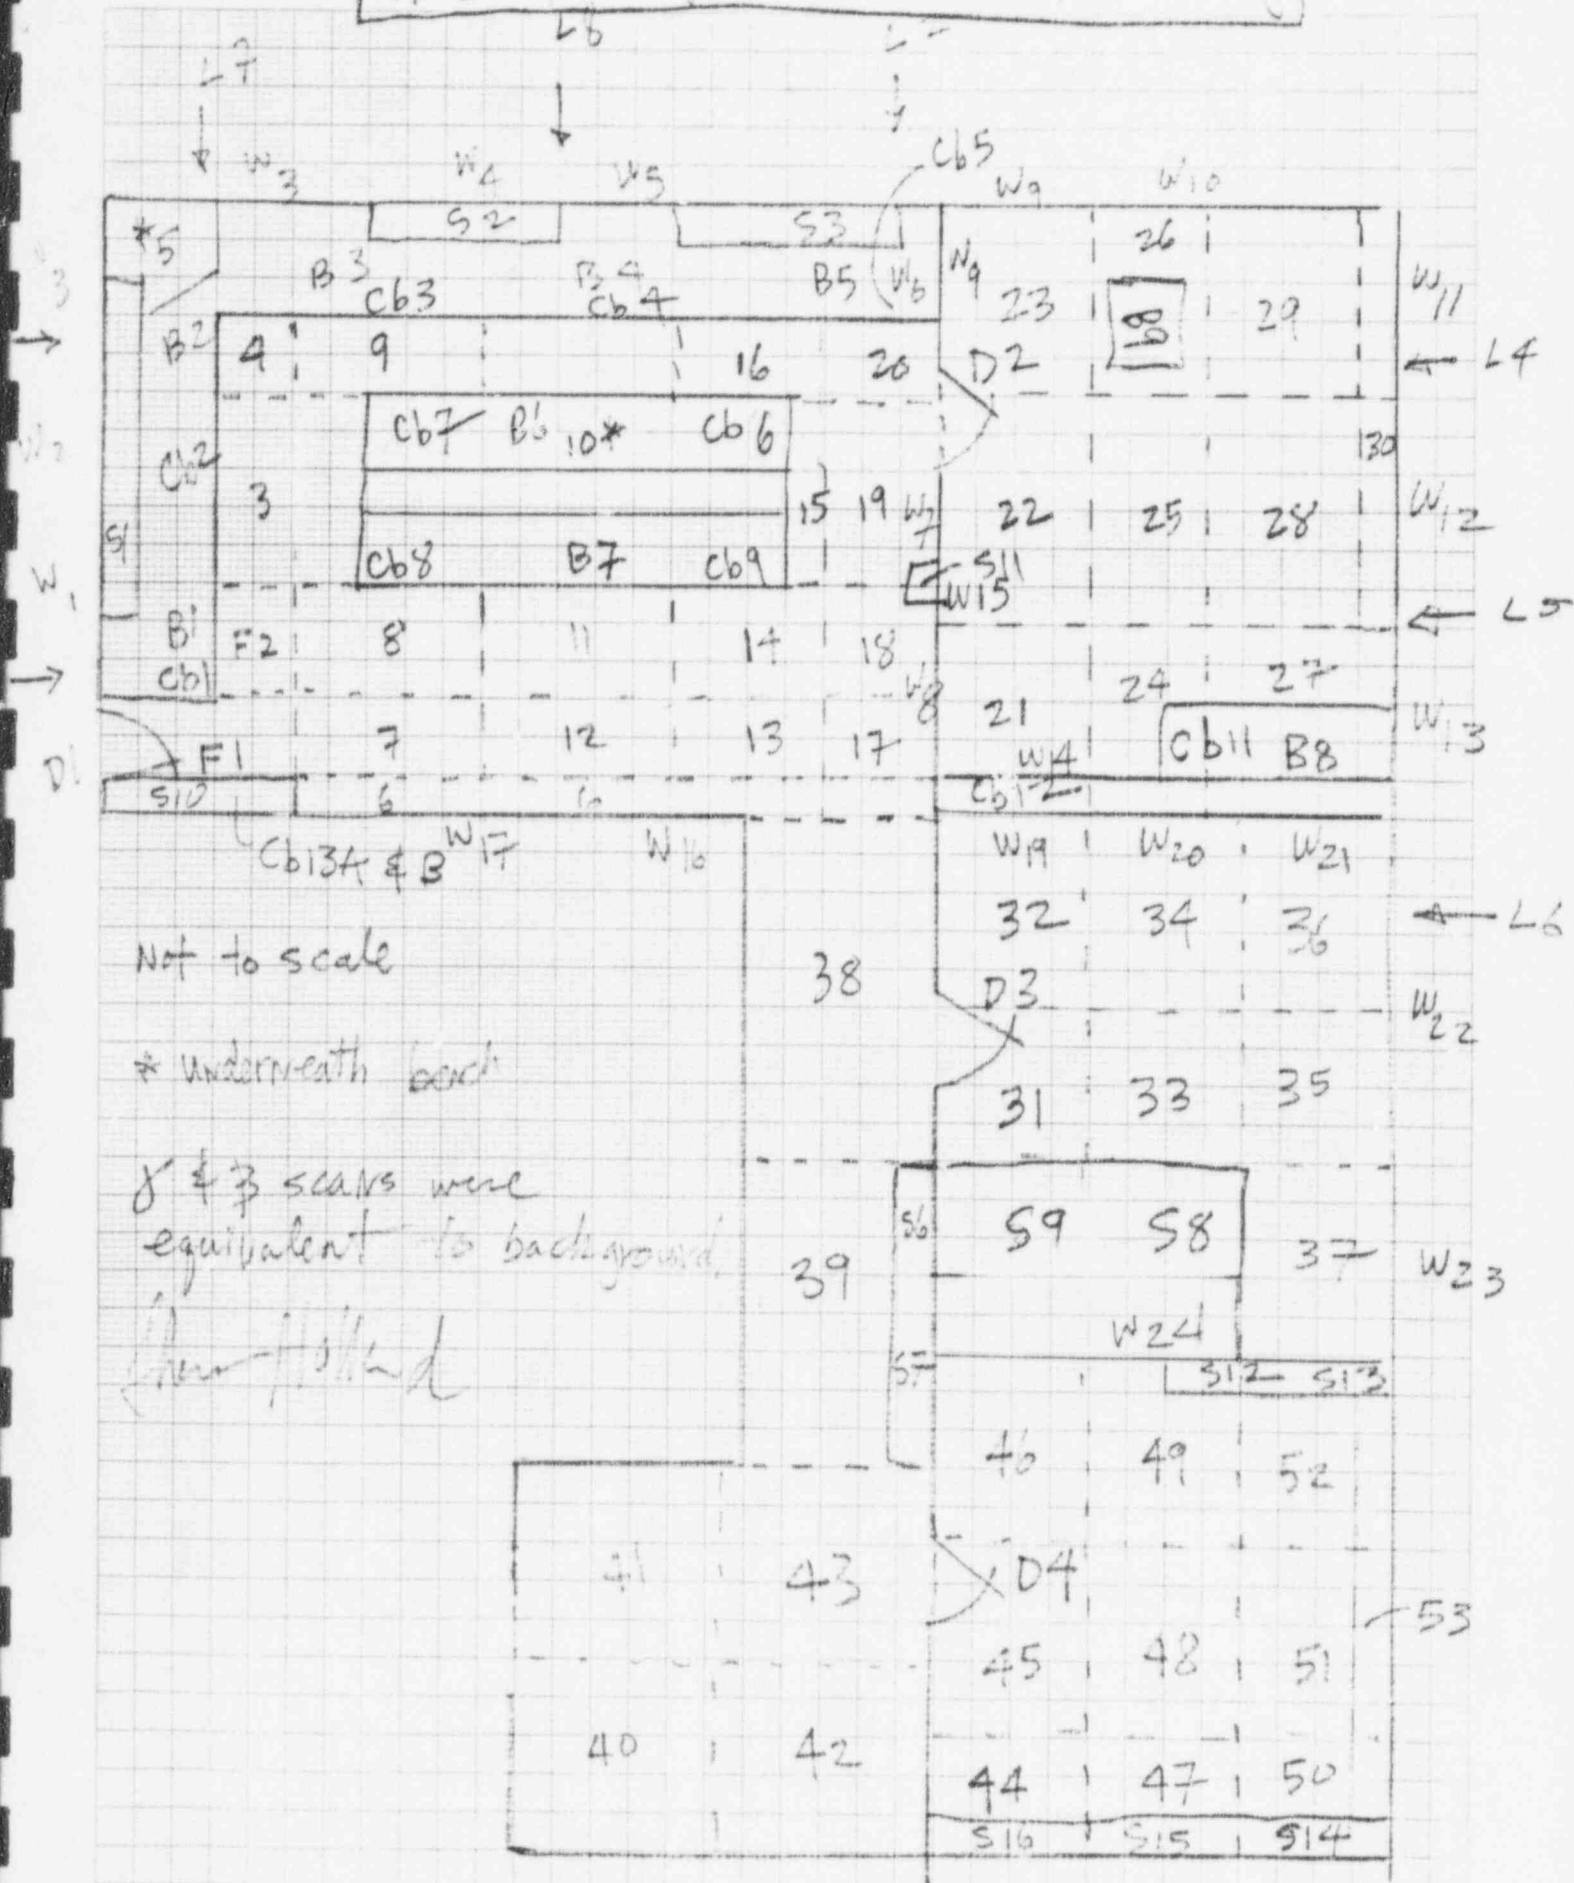 L8
L7
W3 W4 W5 Cb5 W9 W10
*5 S2 S3 26
B3 B4 B5 W6 W9 23 29 W11
Cb3 Cb4 B9
B2 4 9 16 20 D2 L4
Cb7 B6 10* Cb6 130
W2 Cb2
3 15 19 W7 22 25 28 W12
S1
Cb8 B7 Cb9 S11
W1 W15 L5
B1 F2 8 11 14 18
Cb1 W8 24 27
21 W13
7 12 13 17 Cb11 B8
D1 F1 W14
S10 6 6 Cb12
Cb13A & B W17 W16 W19 W20 W21
32 34 36 L6
Not to scale 38
D3 W22
* underneath bench
31 33 35
γ & β scans were
S6 S9 S8
equivalent to background
39 37 W23
W24
S7 S12 S13
46 49 52
41 43 D4
53
45 48 51
40 42
44 47 50
S16 S15 S14